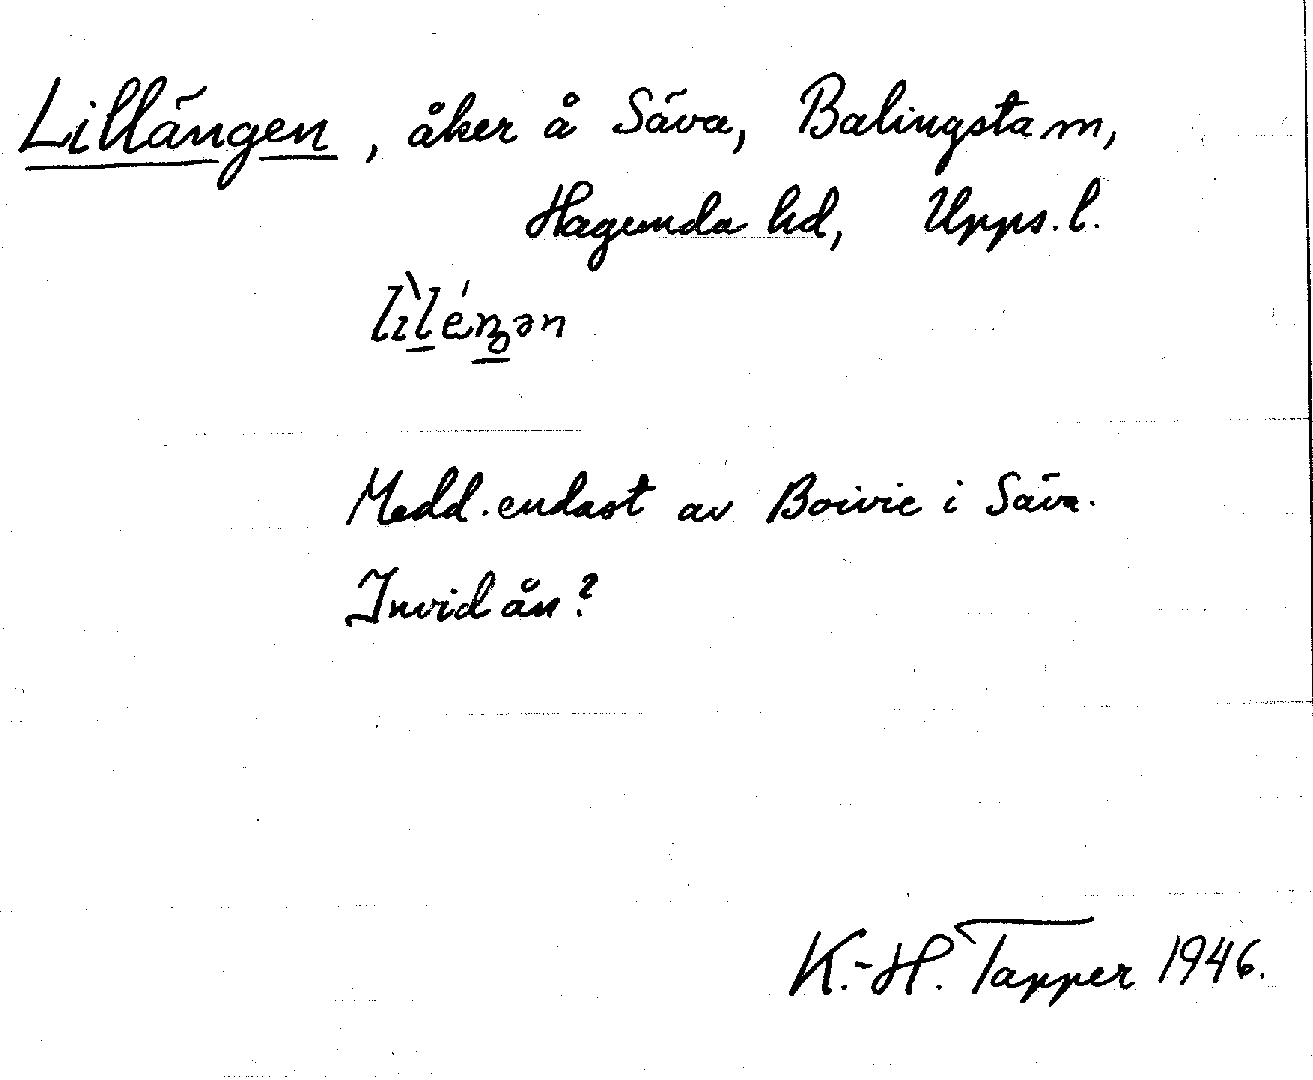 Lillängen, åker å Säva, Balingsta sn,
Hagunda hd, Upps. l.
lìléŋən
Medd. endast av Boivie i Säva.
Invid ån?
K.-H. Tapper 1946.